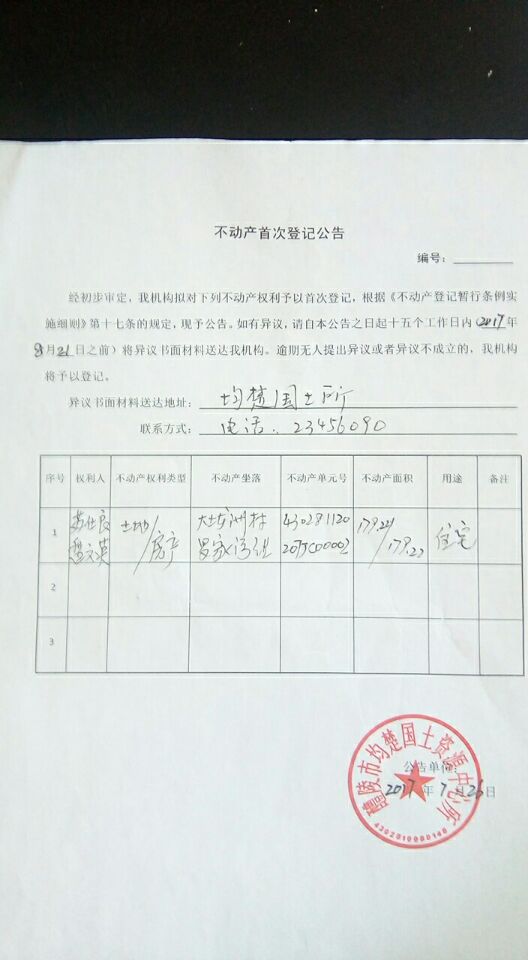 不动产首次登记公告
编号：
经初步审定，我机构拟对下列不动产权利予以首次登记，根据《不动产登记暂行条例实
施细则》第十七条的规定，现予公告。如有异议，请自本公告之日起十五个工作日内（2017年
8月21日之前）将异议书面材料送达我机构。逾期无人提出异议或者异议不成立的，我机构
将予以登记。
异议书面材料送达地址： 均楚国土所
联系方式： 电话：23456090
序号 权利人 不动产权利类型 不动产坐落 不动产单元号 不动产面积 用途 备注
1 土地/房产 430281120 住宅
2
3
公告单位：
2017年7月26日
醴陵市均楚国土资源中心所